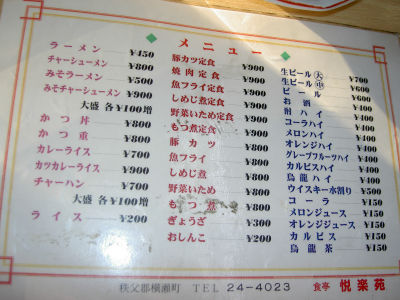 メニュー
ラーメン ¥450
チャーシューメン ¥800
みそラーメン ¥500
みそチャーシューメン ¥900
大盛 各¥100増
かつ丼 ¥800
かつ重 ¥800
カレーライス ¥700
カツカレーライス ¥900
チャーハン ¥700
大盛 各¥100増
ライス ¥200
豚カツ定食 ¥900
焼肉定食 ¥900
魚フライ定食 ¥900
しめじ煮定食 ¥900
野菜いため定食 ¥900
もつ煮定食 ¥900
豚カツ ¥800
魚フライ ¥800
しめじ煮 ¥800
野菜いため ¥800
もつ煮 ¥800
ぎょうざ ¥300
おしんこ ¥200
生ビール大 ¥700
生ビール中 ¥600
ビール ¥600
お酒 ¥400
酎ハイ ¥400
コーラハイ ¥400
メロンハイ ¥400
オレンジハイ ¥400
グレープフルーツハイ ¥400
カルピスハイ ¥400
烏龍ハイ ¥400
ウイスキー水割り ¥500
コーラ ¥150
メロンジュース ¥150
オレンジジュース ¥150
カルピス ¥150
烏龍茶 ¥150
秩父郡横瀬町 TEL 24-4023 食亭 悦楽苑